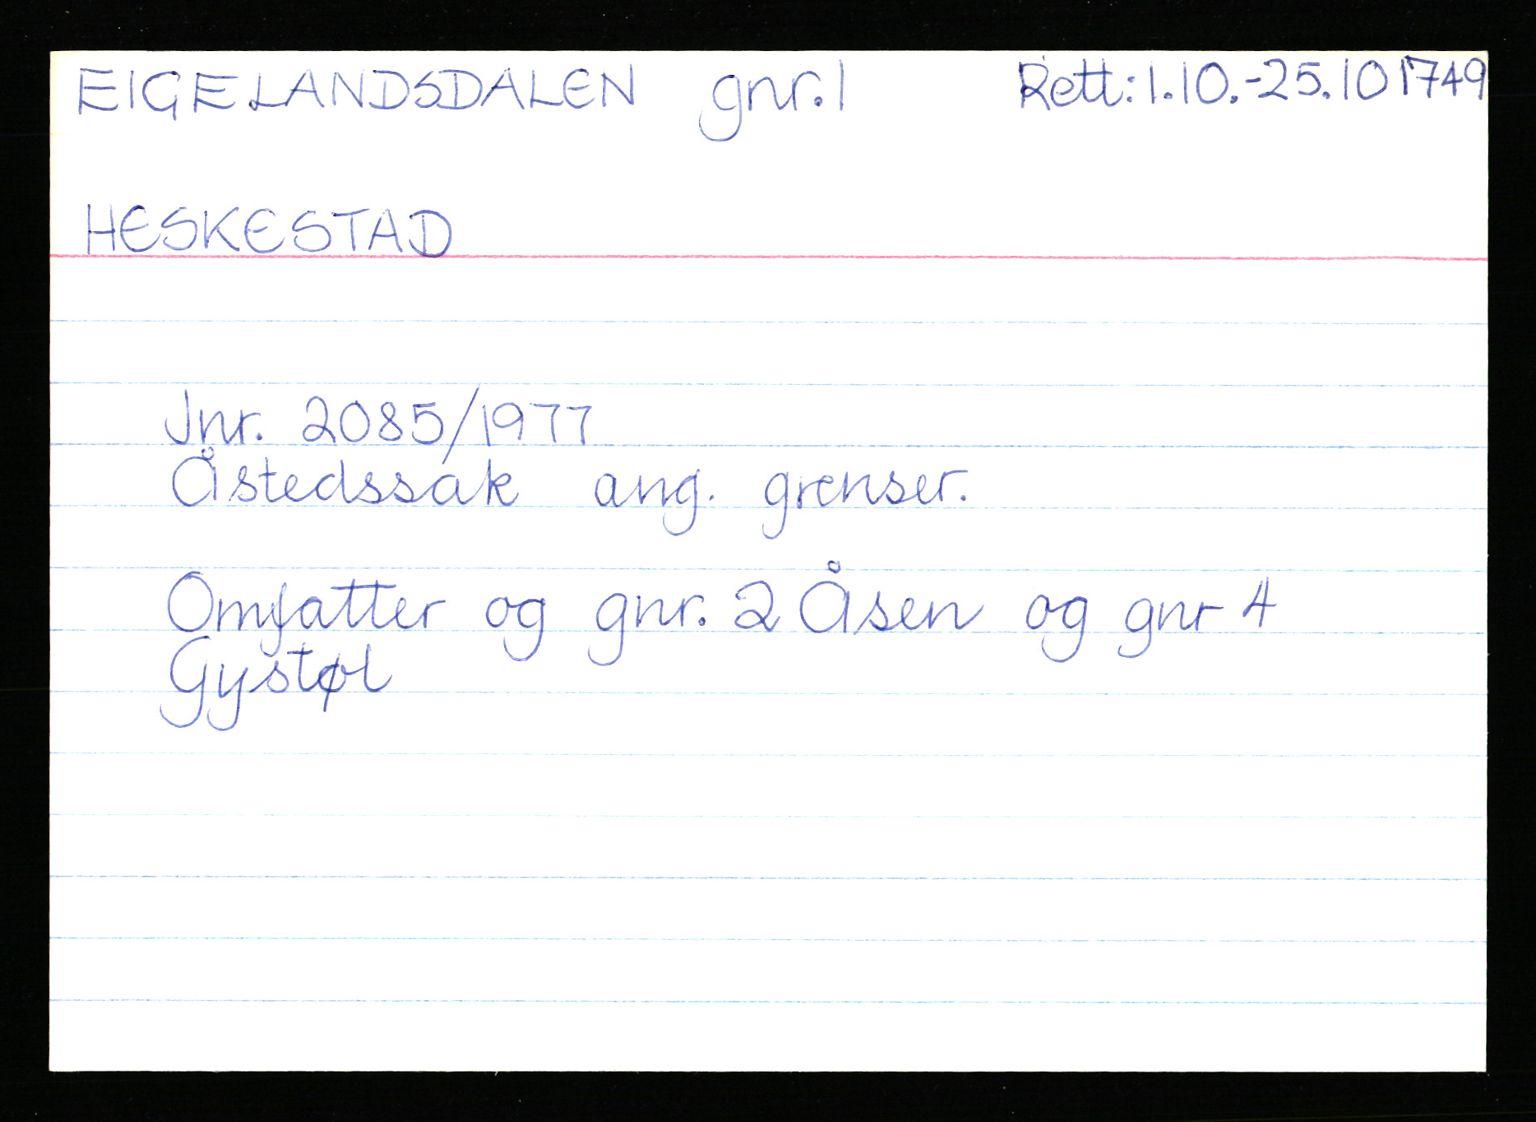 EIGELANDSDALEN gnr. 1 Rett: 1.10.-25.10 1749
HESKESTAD
Jnr. 2085/1977
Åstedssak ang. grenser.
Omfatter og gnr. 2 Åsen og gnr 4
Gystøl